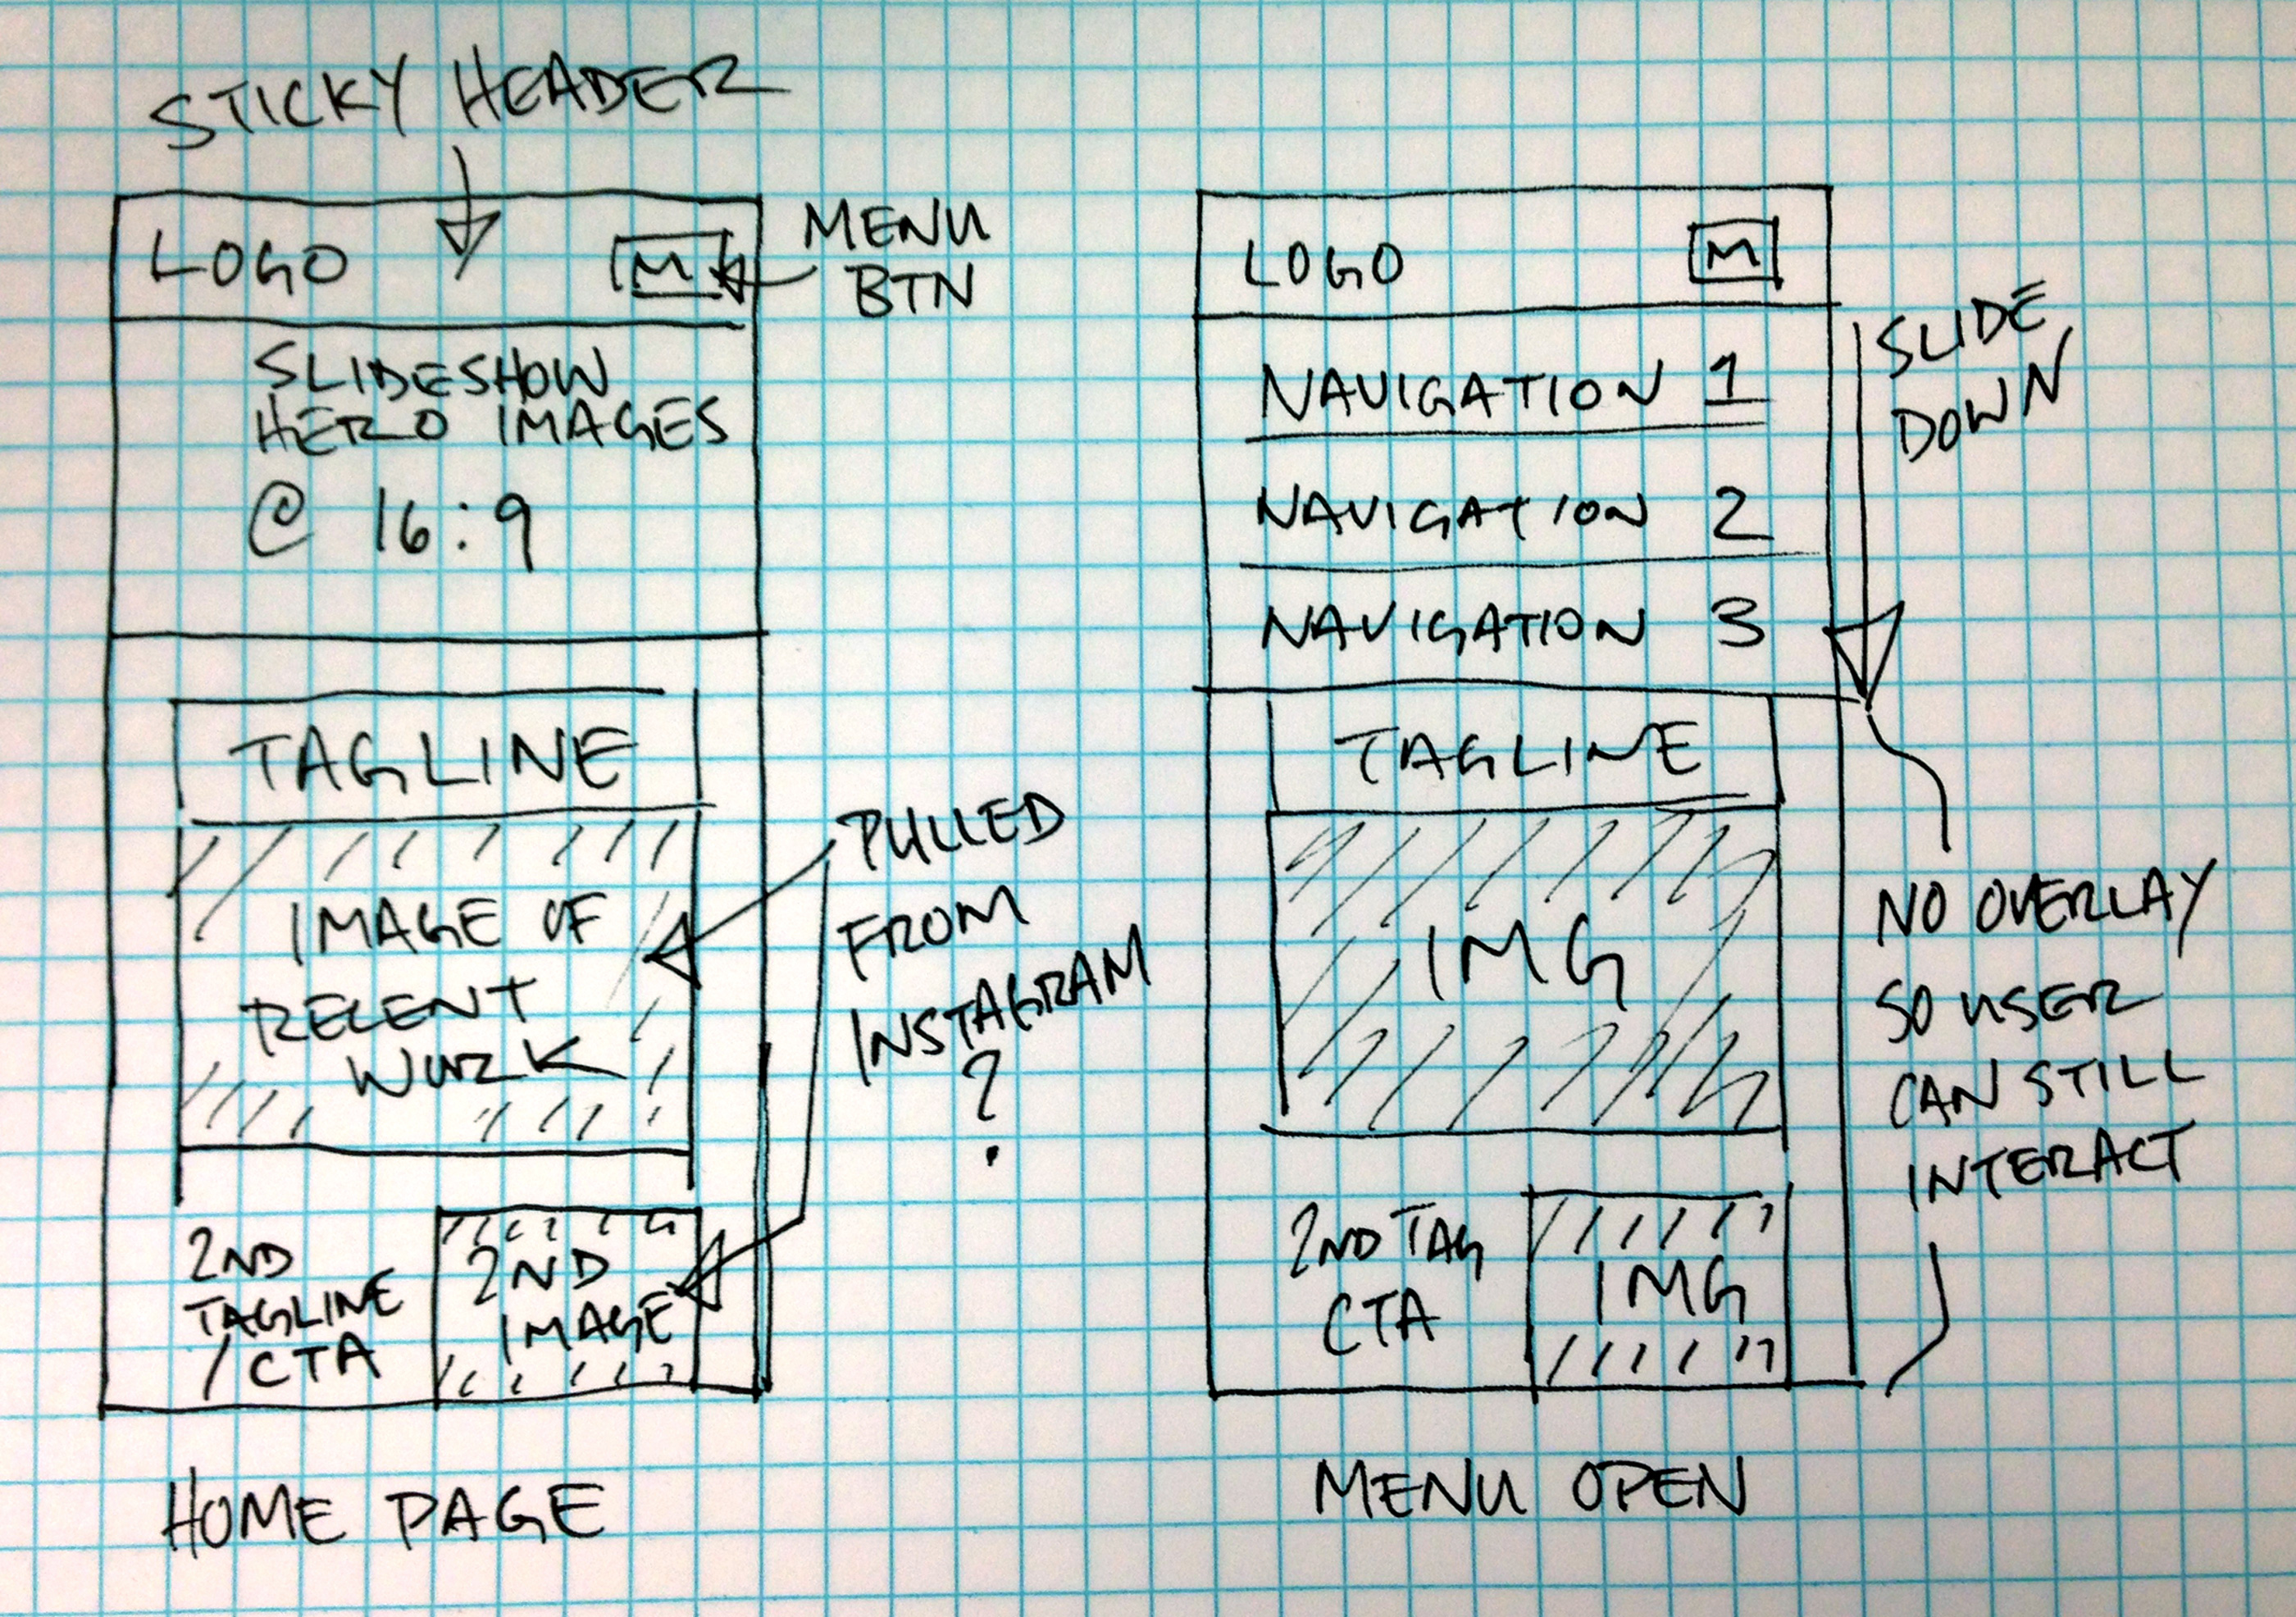 STICKY HEADER
LOGO
M
MENU
BTN
SLIDESHOW
HERO IMAGES
@ 16:9
TAGLINE
IMAGE OF
RECENT
WORK
PULLED
FROM
INSTAGRAM
?
2ND
TAGLINE
/ CTA
2ND
IMAGE
HOME PAGE
LOGO
M
NAVIGATION 1
NAVIGATION 2
NAVIGATION 3
SLIDE
DOWN
TAGLINE
IMG
NO OVERLAY
SO USER
CAN STILL
INTERACT
2ND TAG
CTA
IMG
MENU OPEN